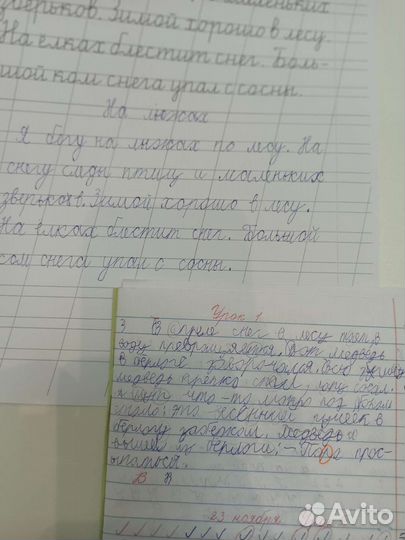 зверьков. Зимой хорошо в лесу.
На елках блестит снег. Боль-
шой ком снега упал с сосны.
На лыжах
Я бегу на лыжах по лесу. На
снегу следы птиц и маленьких
зверьков. Зимой хорошо в лесу.
На елках блестит снег. Большой
ком снега упал с сосны.
Урок 1
3 В апреле снег в лесу
воду превращается. Вот медведь
в берлоге заворочался. Всю
медведь крепко спал, лапу сосал.
что-то мокро под боком
стало: это весенний ручеёк в
берлогу забежал. Медведь
вышел из берлоги: - Пора прос-
ыпаться.
В В
23 ноября
Avito